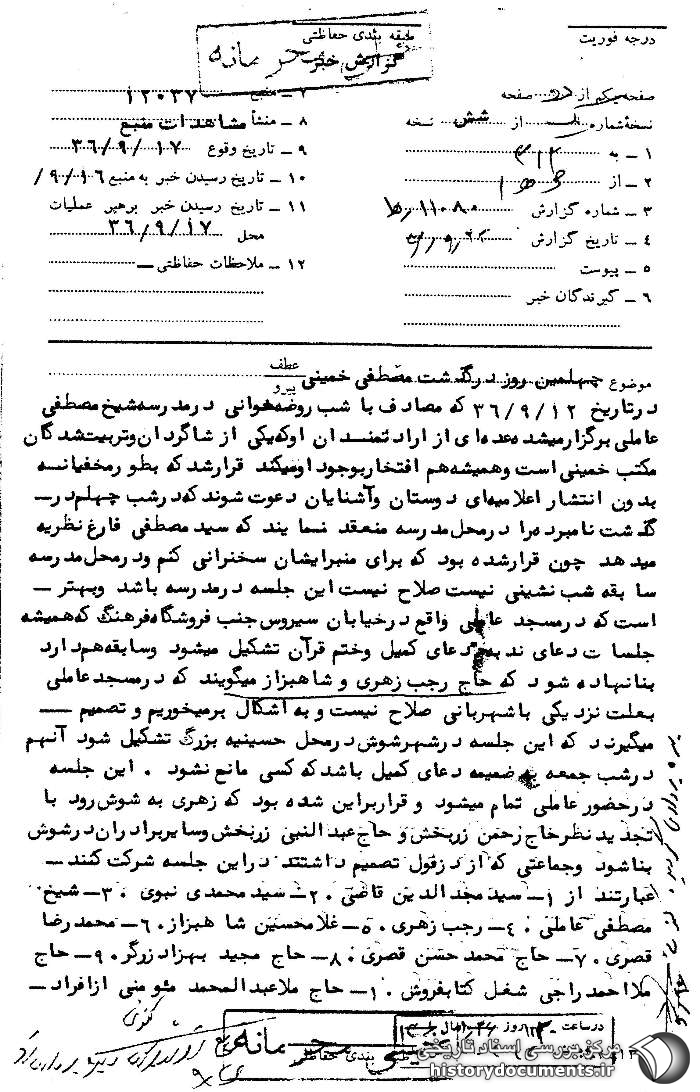 درجه فوریت
طبقه بندی حفاظتی
گزارش خبر
صفحه یکم از دو صفحه
نسخه شماره از شش نسخه
۱ ـ به ۳۱۲
۲ ـ از
۳ ـ شماره گزارش ۱۱۰۸۰
۴ ـ تاریخ گزارش
۵ ـ پیوست
۶ ـ گیرندگان خبر
۷ ـ منبع ۱۲۰۳۷
۸ ـ منشأ مشاهدات منبع
۹ ـ تاریخ وقوع ۳۶/۹/۱۷
۱۰ ـ تاریخ رسیدن خبر به منبع ۹/۱۶/
۱۱ ـ تاریخ رسیدن خبر برهبر عملیات
محل ۳۶/۹/۱۷
۱۲ ـ ملاحظات حفاظتی ـ
موضوع چهلمین روز درگذشت مصطفی خمینی عطف پیرو
درتاریخ ۳۶/۹/۱۲ که مصادف با شب روضه‌خوانی درمدرسه شیخ مصطفی
عاملی برگزار میشد عده‌ای از ارادتمندان او که یکی از شاگردان وتربیت شدگان
مکتب خمینی است وهمیشه هم افتخار بوجود او میکند قرارشد که بطور مخفیانه
بدون انتشار اعلامیه‌ای دوستان وآشنایان دعوت شوند که درشب چهلم در ـ
گذشت نامبرده را درمحل مدرسه منعقد نمایند که سید مصطفی فارغ نظریه
میدهد چون قرارشده بود که برای منبر ایشان سخنرانی کنم ودرمحل مدرسه
سابقه شب نشینی نیست صلاح نیست این جلسه درمدرسه باشد وبهتر ـ
است که درمسجد عاملی واقع درخیابان سیروس جنب فروشگاه فرهنگ که همیشه
جلسات دعای ندبه و دعای کمیل وختم قرآن تشکیل میشود وسابقه هم دارد
بنانهاده شود که حاج رجب زهری و شاهبزاز میگویند که درمسجد عاملی
بعلت نزدیکی باشهربانی صلاح نیست و به اشکال برمیخوریم و تصمیم ـ
میگیرند که این جلسه درشهرشوش درمحل حسینیه بزرگ تشکیل شود آنهم
درشب جمعه به ضمیمه دعای کمیل باشد که کسی مانع نشود . این جلسه
درحضور عاملی تمام میشود و قرار براین شده بود که زهری به شوش رود با
تجدید نظر حاج رحمن زربخش و حاج عبدالنبی زربخش وسایر برادران درشوش
بناشود وجماعتی که از دزفول تصمیم داشتند دراین جلسه شرکت کنند ـ
عبارتند از ۱ـ سید مجدالدین قاضی . ۲ـ سید محمدی نبوی . ۳ـ شیخ
مصطفی عاملی . ۴ـ رجب زهری . ۵ـ غلامحسین شاهبزاز . ۶ـ محمدرضا
قصری . ۷ـ حاج محمد حسن قصری . ۸ـ حاج مجید بهزاد زرگر . ۹ـ حاج
ملا احمد راجی شغل کتابفروش . ۱۰ـ حاج ملا عبدالمحمد مئومنی از افراد ـ
در ساعت روز
طبقه بندی حفاظتی
مرکز بررسی اسناد تاریخی
historydocuments.ir